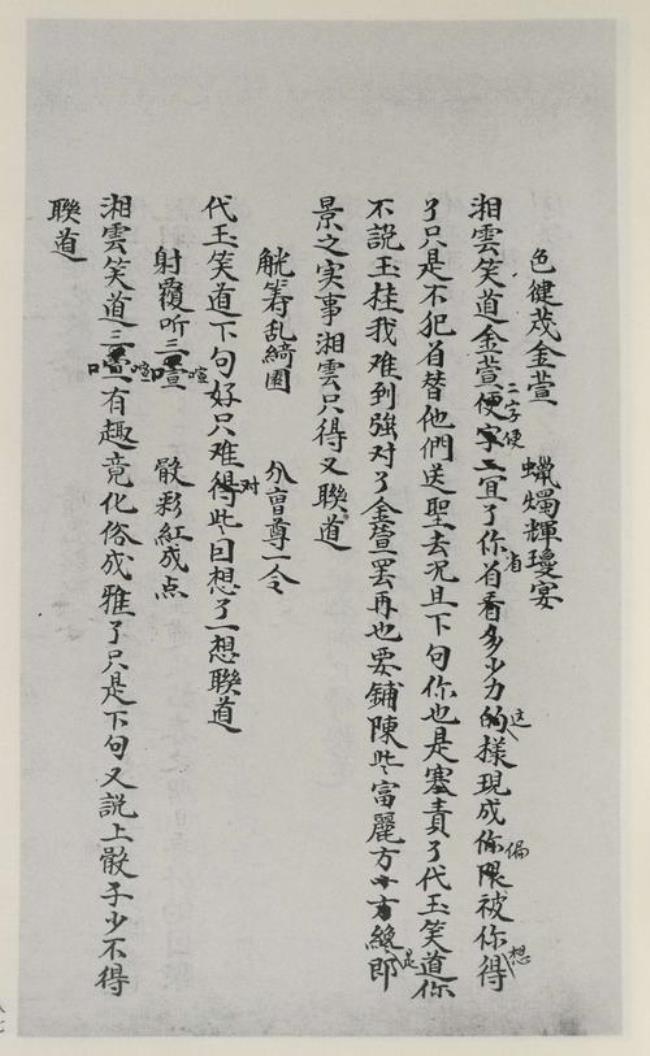 色健茂金萱　蠟燭輝瓊宴
湘雲笑道金萱二字便便字二宜了你省首看多少力的这樣現成你偏限被你想得
了只是不犯首替他們送聖去况且下句你也是塞責了代玉笑道你
不說玉桂我难到強对了金萱罢再也要鋪陳些富麗方十方緃是郎
景之实事湘雲只得又聯道
觥筹乱綺園　分曺尊一令
代玉笑道下句好只难得对些因想了一想聯道
射覆听三喧　骰彩紅成点
湘雲笑道三喧有趣竟化俗成雅了只是下句又説上骰子少不得
聯道